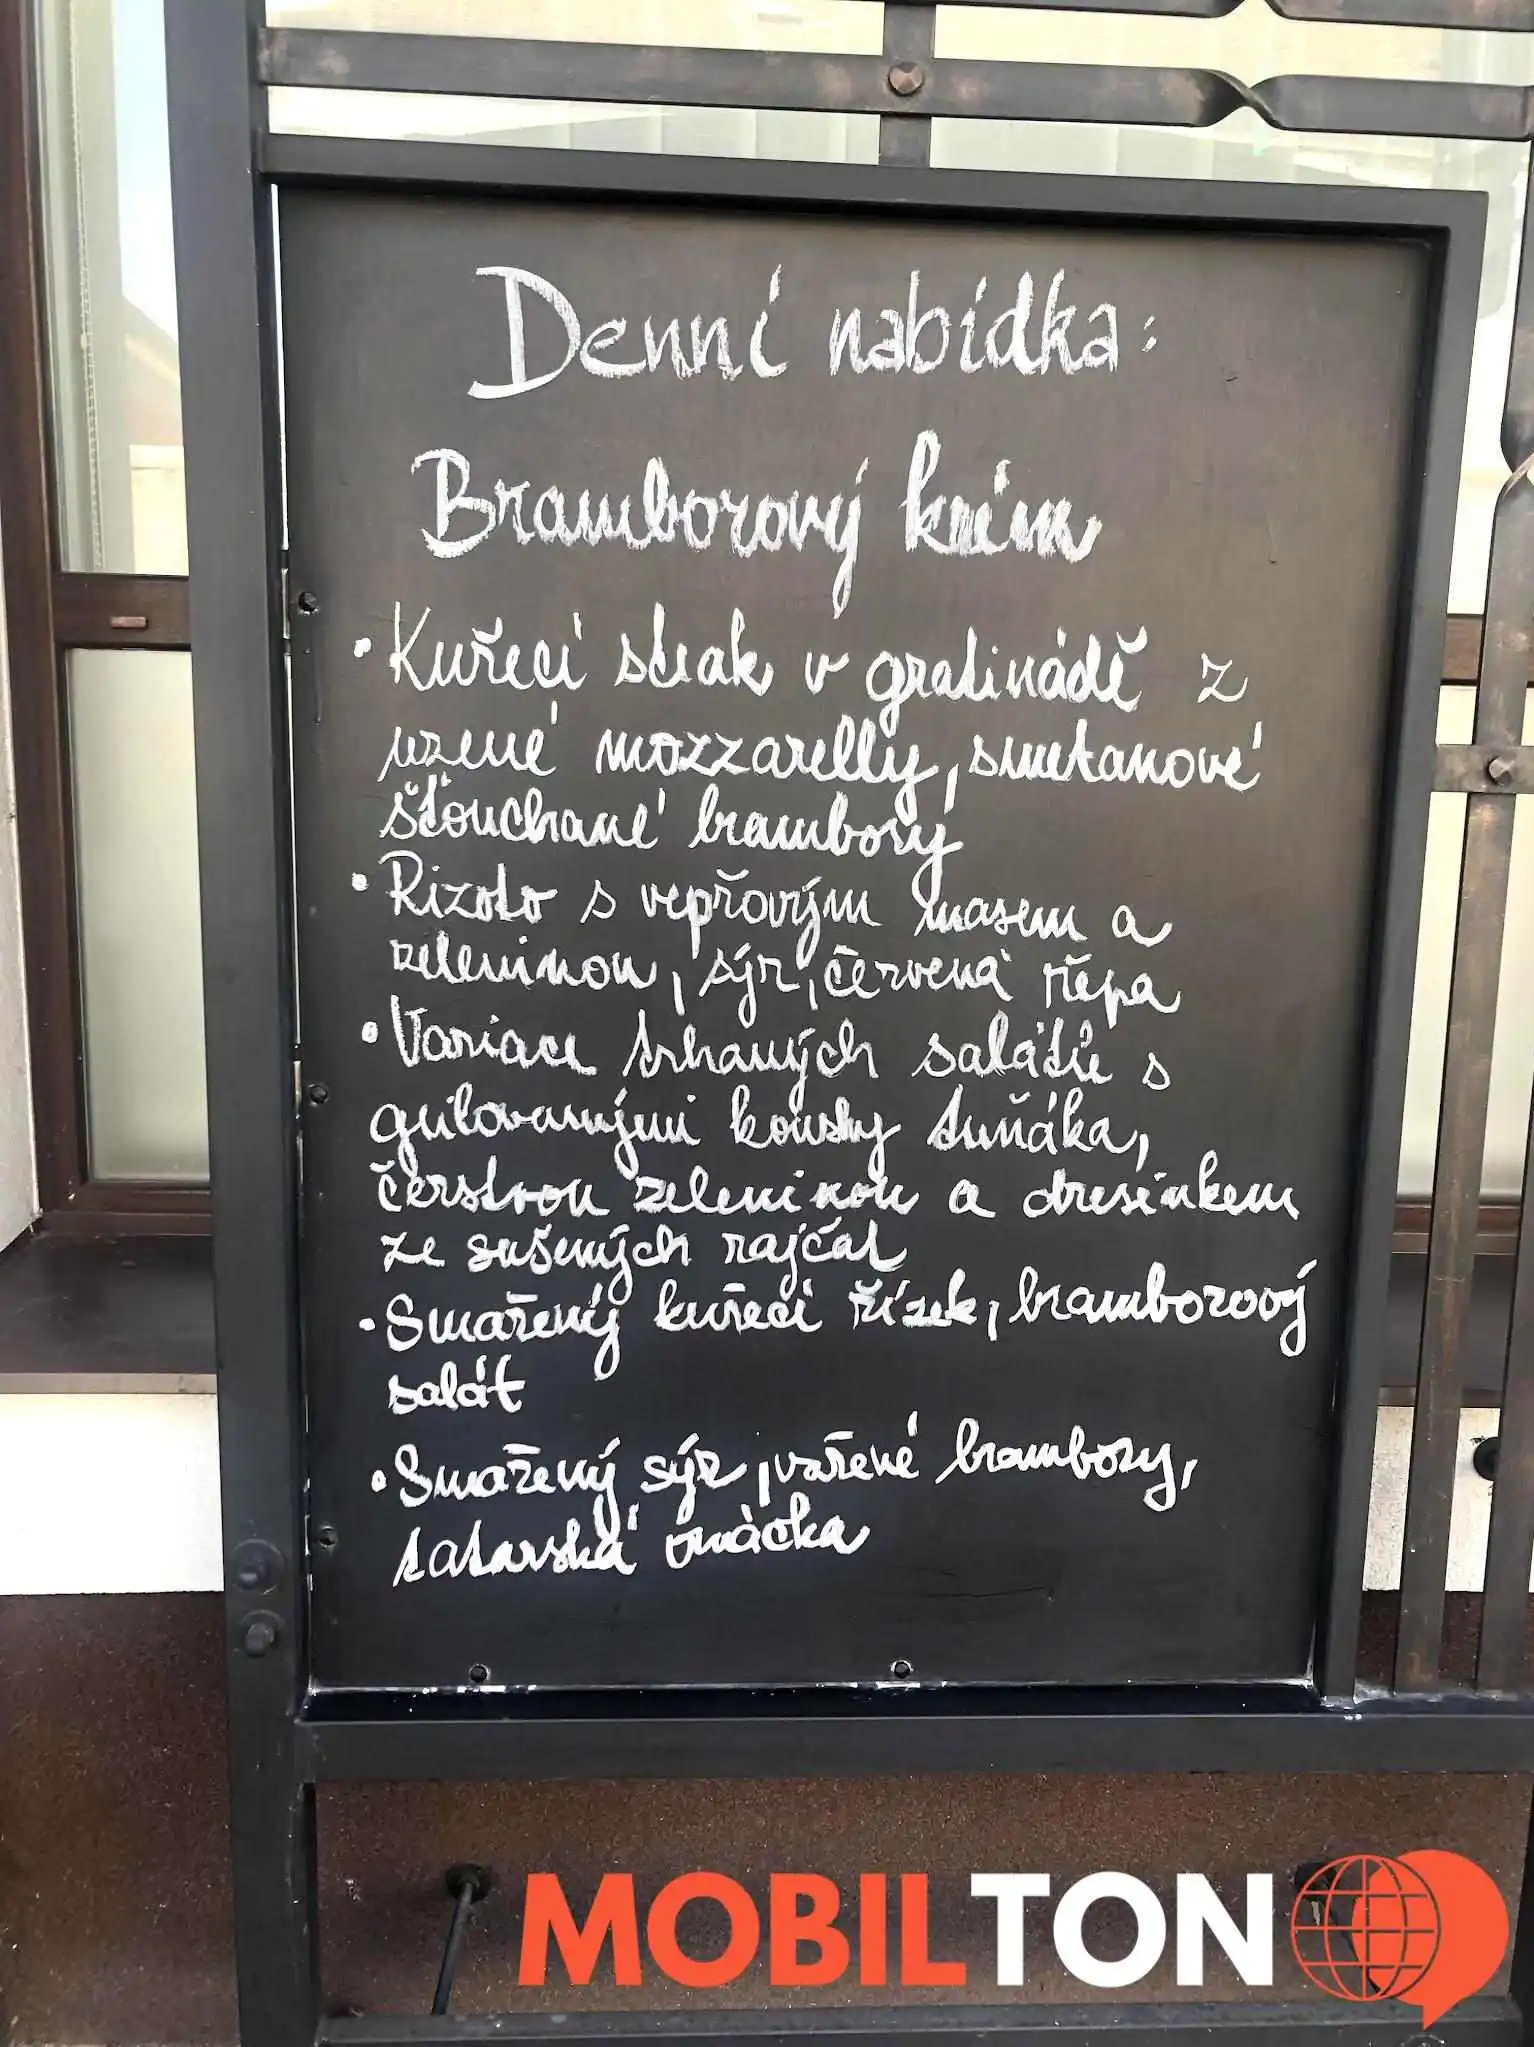 Denní nabídka:
Bramborový krém
• Kuřecí steak v gratinádě z
uzené mozzarelly, smetanové
šťouchané brambory
• Rizoto s vepřovým masem a
zeleninou, sýr, červená řepa
• Variace trhaných salátů s
grilovanými kousky tuňáka,
čerstvou zeleninou a dresinkem
ze sušených rajčat
• Smažený kuřecí řízek, bramborový
salát
• Smažený sýr, vařené brambory,
tatarská omáčka
MOBILTON